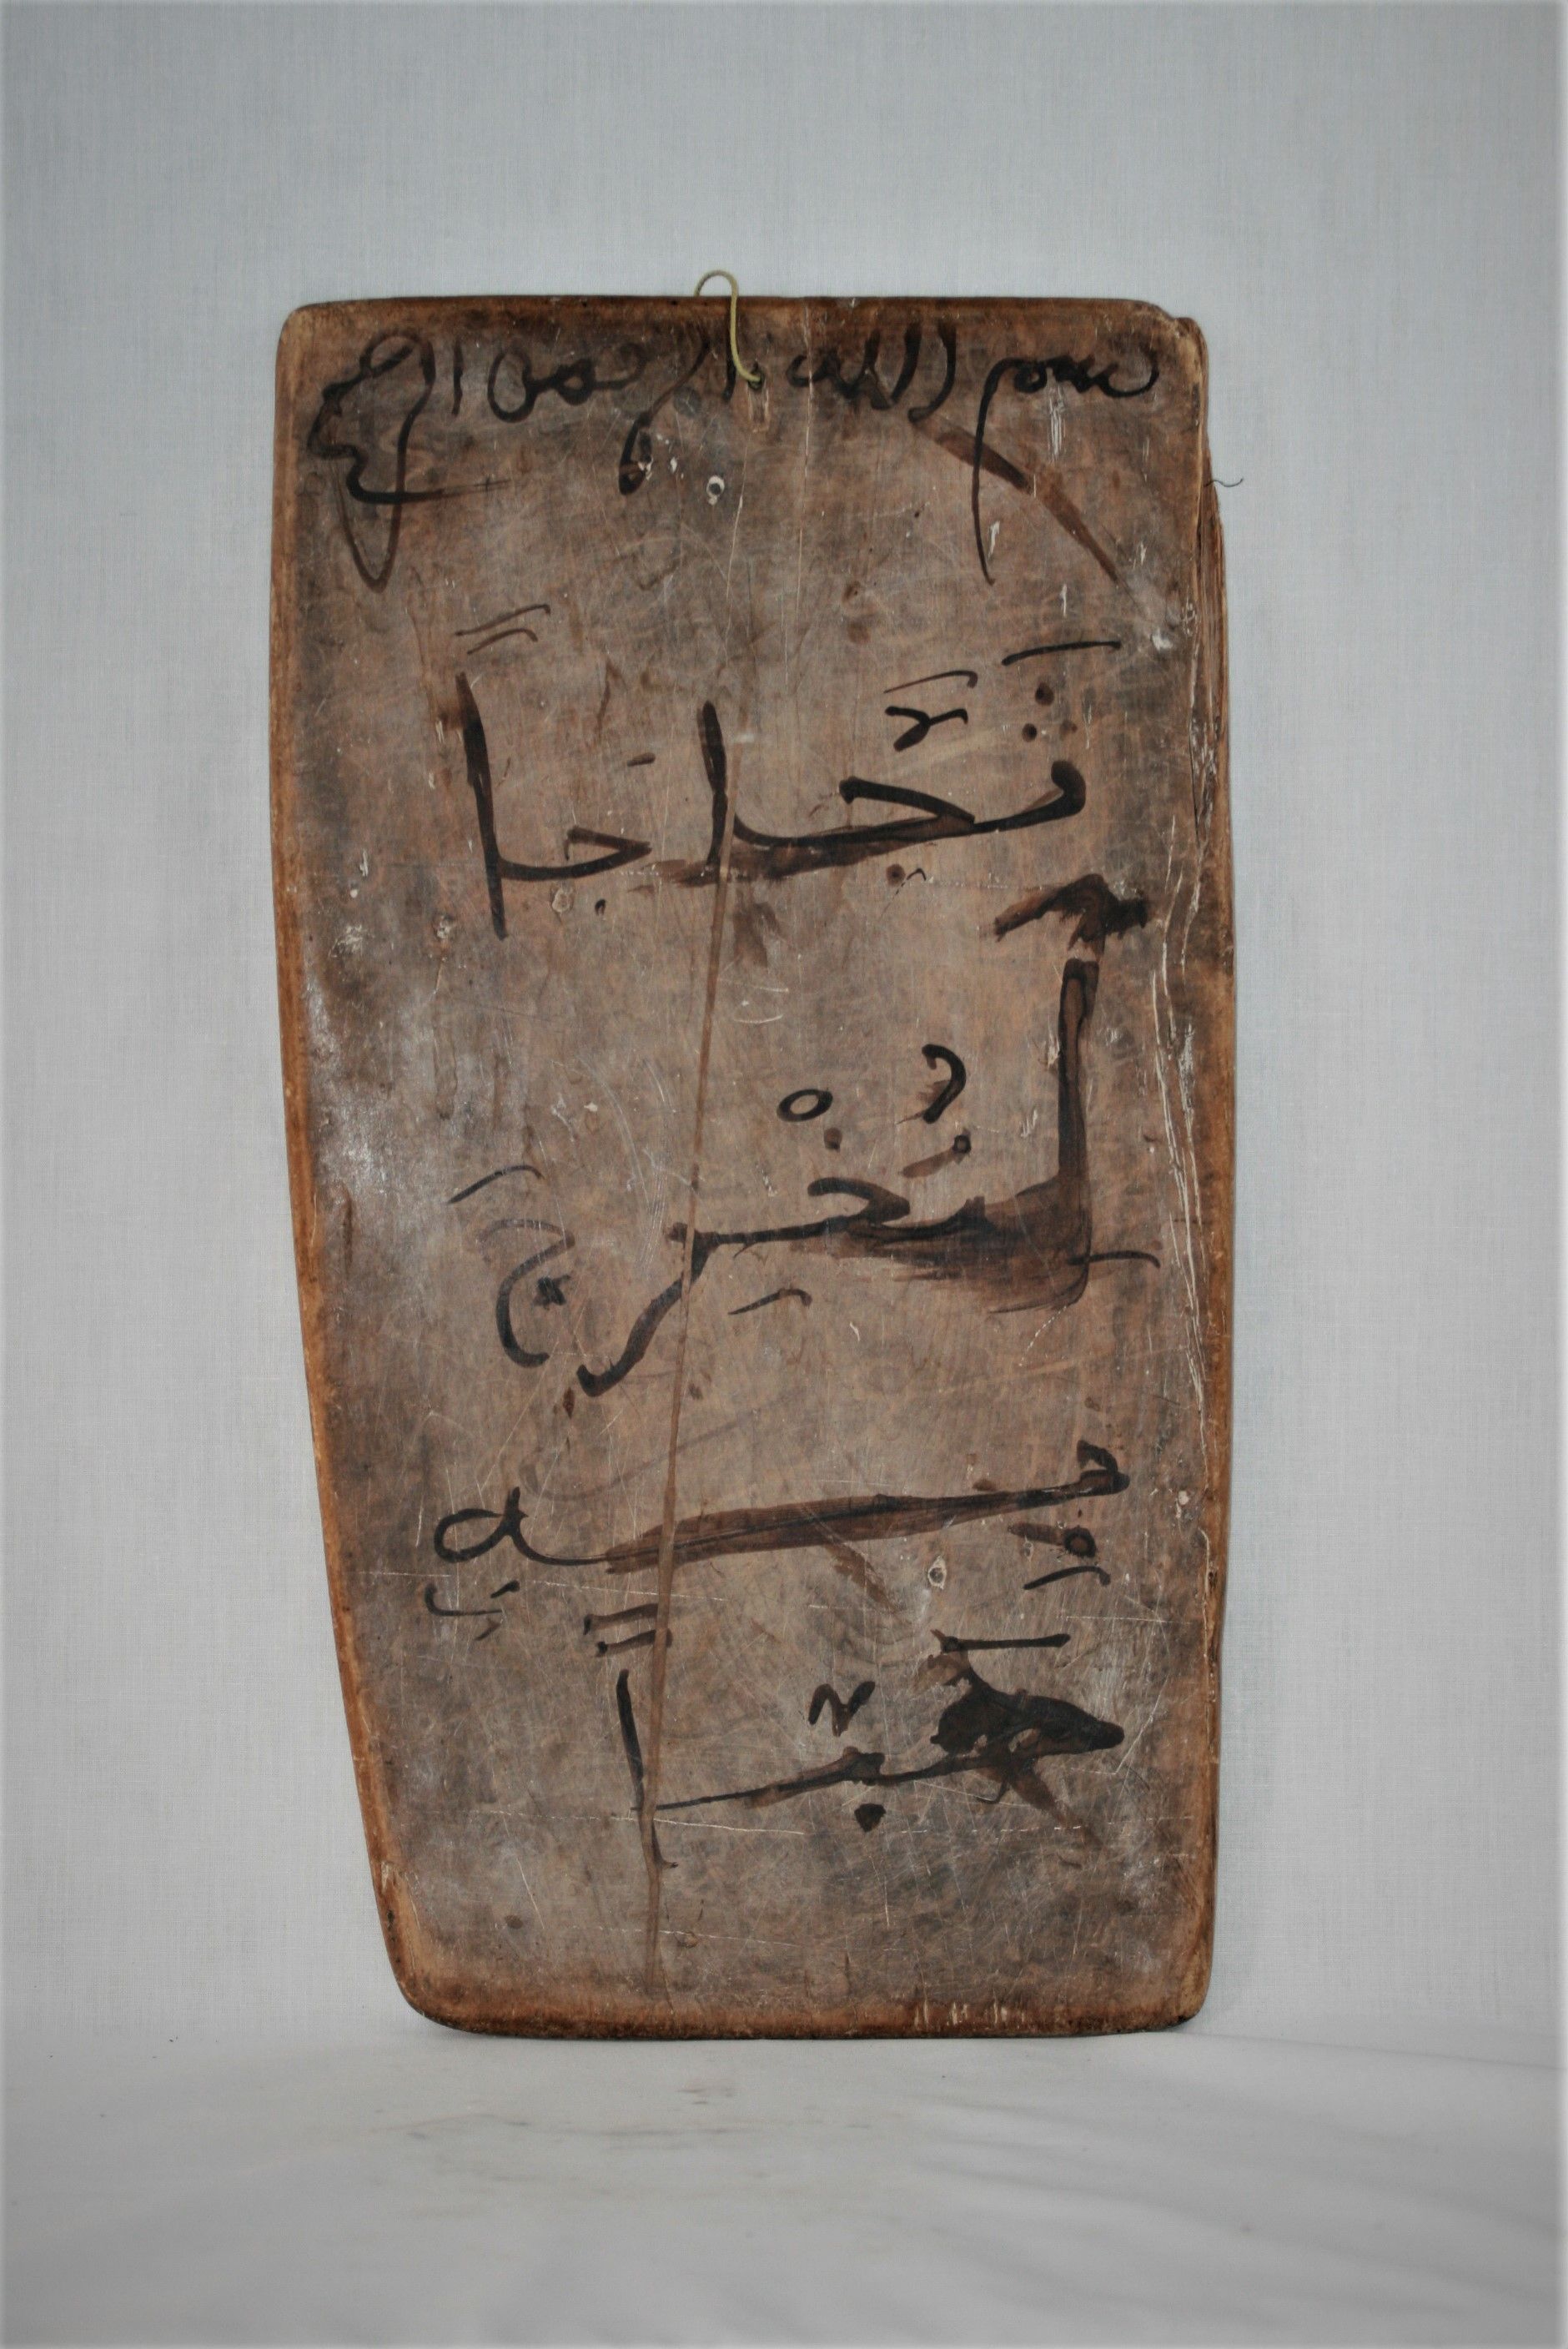 بسم الله الرحمن الرحيم
ثَجَّاجَاً
لِنُخْرِجَ
بِهِ
حَبّاً